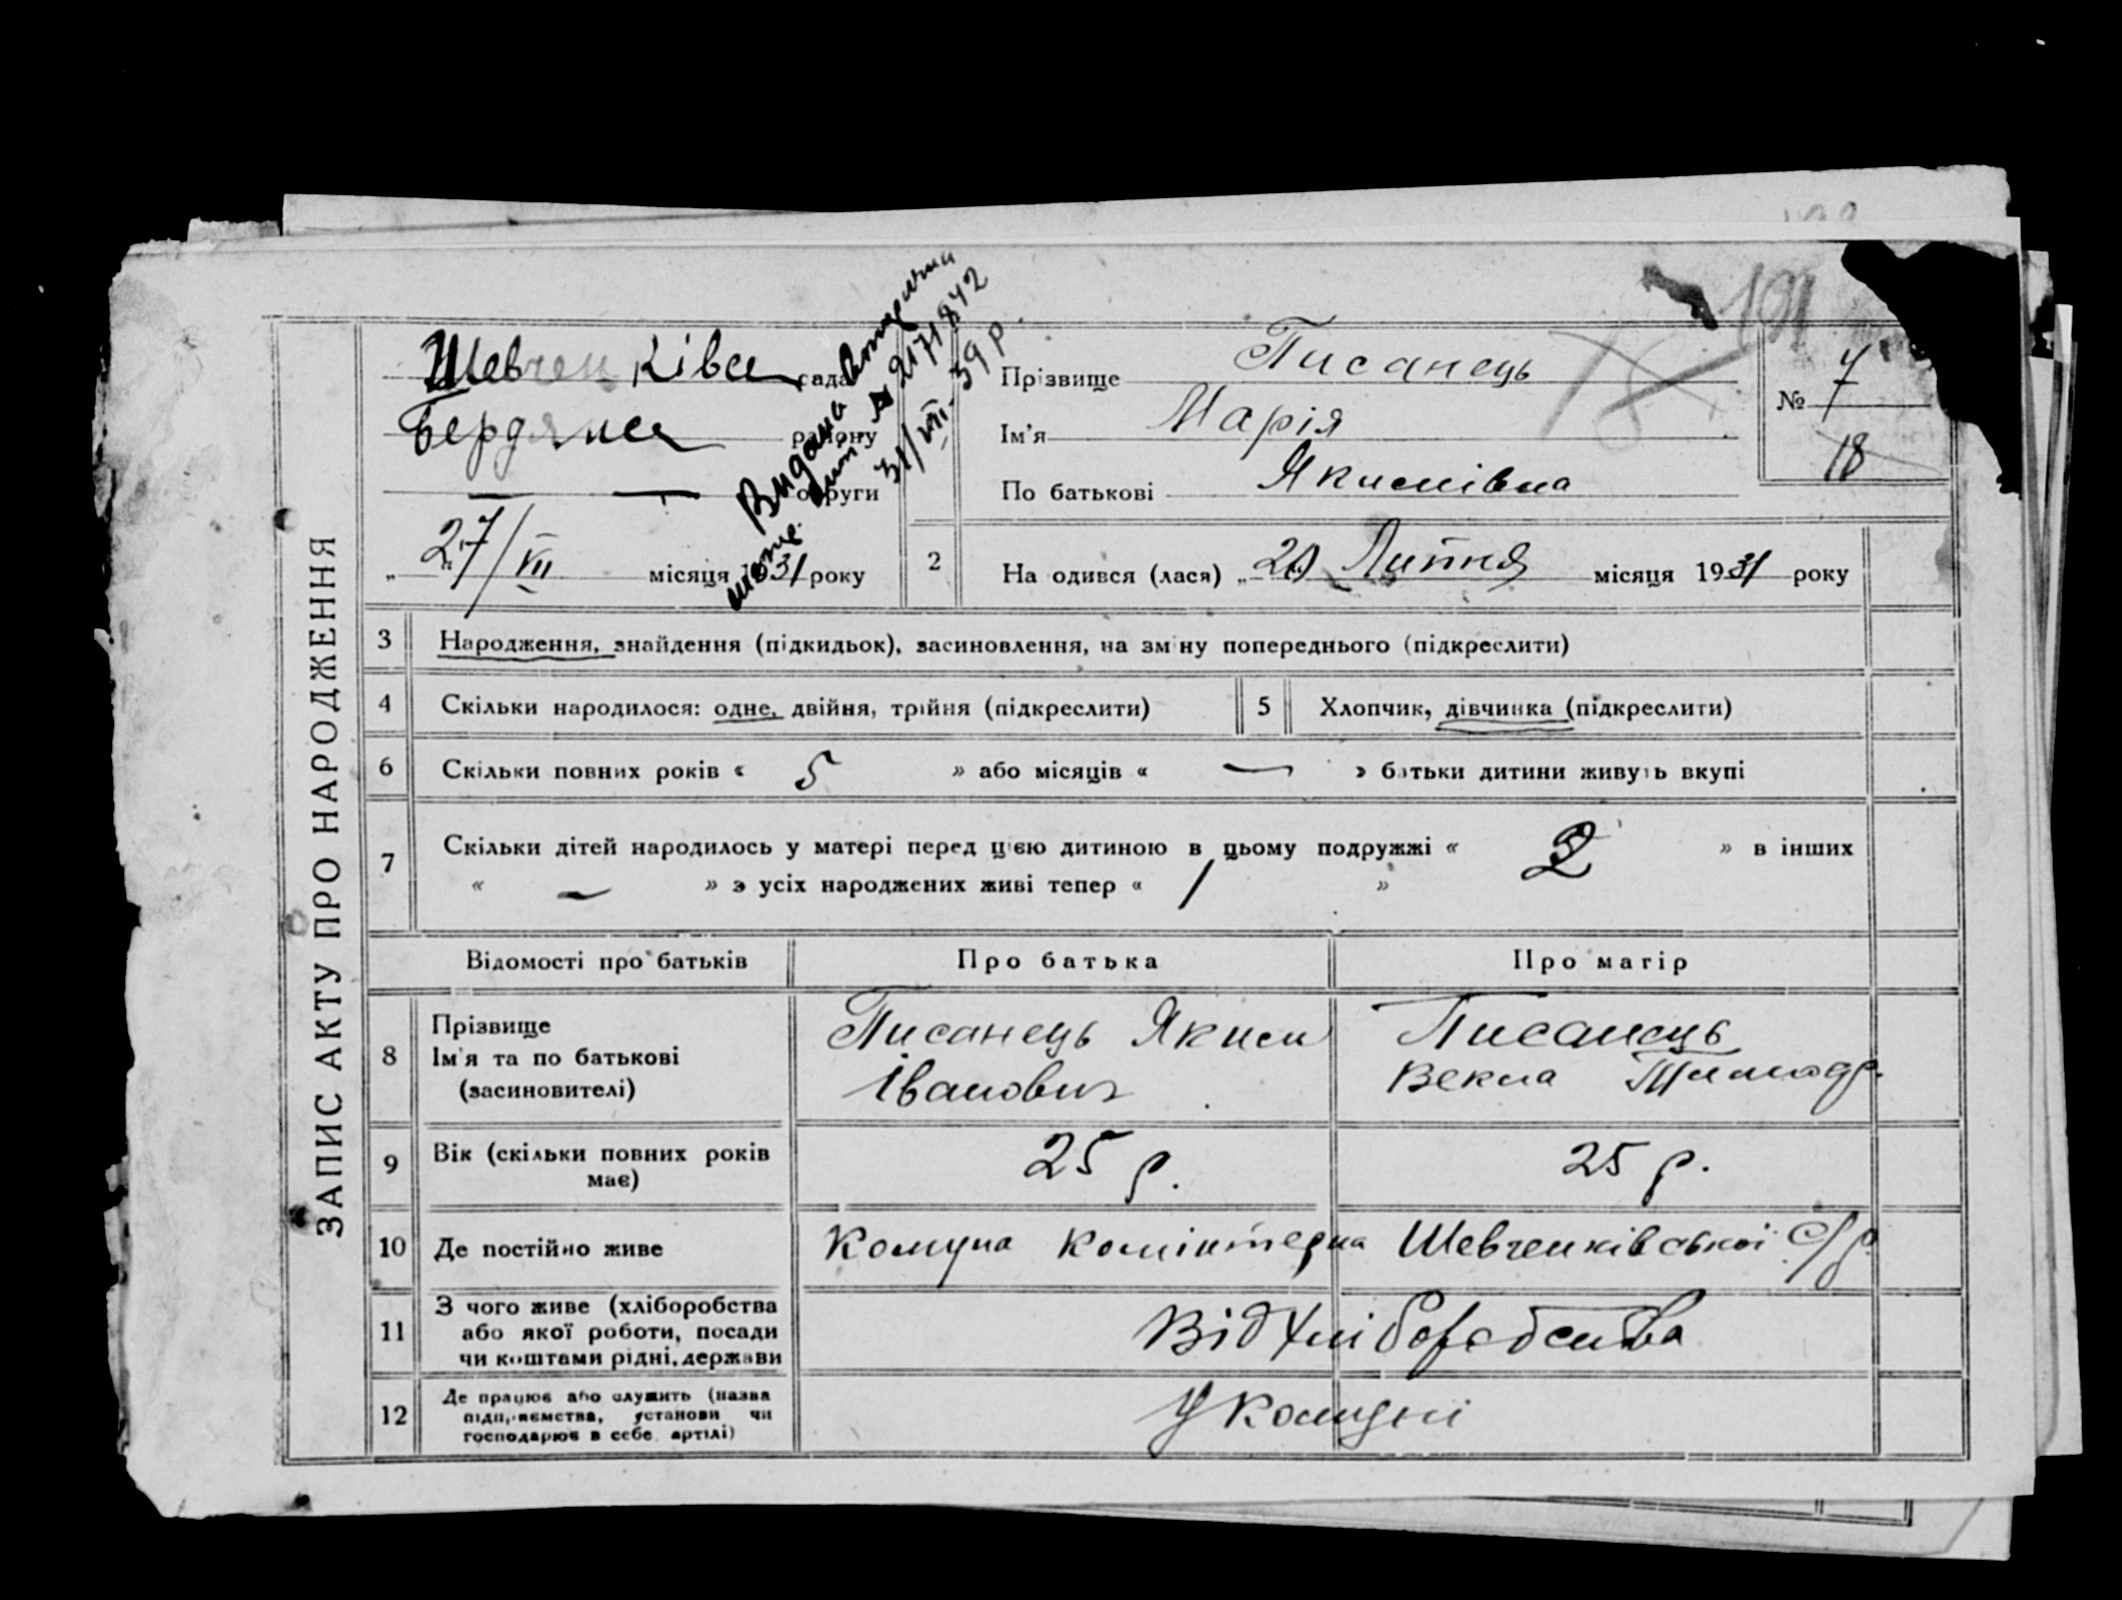 ЗАПИС АКТУ ПРО НАРОДЖЕННЯ
Шевченківсь рада
Бердянсь району
— — округи
„27/VII місяця 1931 року
Видана вторично
№ 2171842
31/VIII-39 р
Прізвище Писанець
Ім'я Марія
По батькові Якимівна
191
№ 7
18
2 На одився (лася) „20 Липня місяця 1931 року
3 Народження, знайдення (підкидьок), засиновлення, на зм ну попереднього (підкреслити)
4 Скільки народилося: одне, двійня, трійня (підкреслити) 5 Хлопчик, дівчинка (підкреслити)
6 Скільки повних років « 5 » або місяців « — » батьки дитини живуть вкупі
7 Скільки дітей народилось у матері перед цією дитиною в цьому подружжі « 2 » в інших
« — » з усіх народжених живі тепер « 1 »
Відомості про батьків Про батька Про матір
8 Прізвище
Ім'я та по батькові
(засиновителі)
Писанець Яким
Іванович
Писанець
Векла Тимофр.
9 Вік (скільки повних років
має)
25 р. 25 р.
10 Де постійно живе Комуна Комінтерна Шевченківської С/р.
11 З чого живе (хліборобства
або якої роботи, посади
чи коштами рідні, держави
Від хліборобства
12 Де працює або служить (назва
підприємства, установи чи
господарює в себе, артілі)
У комуні